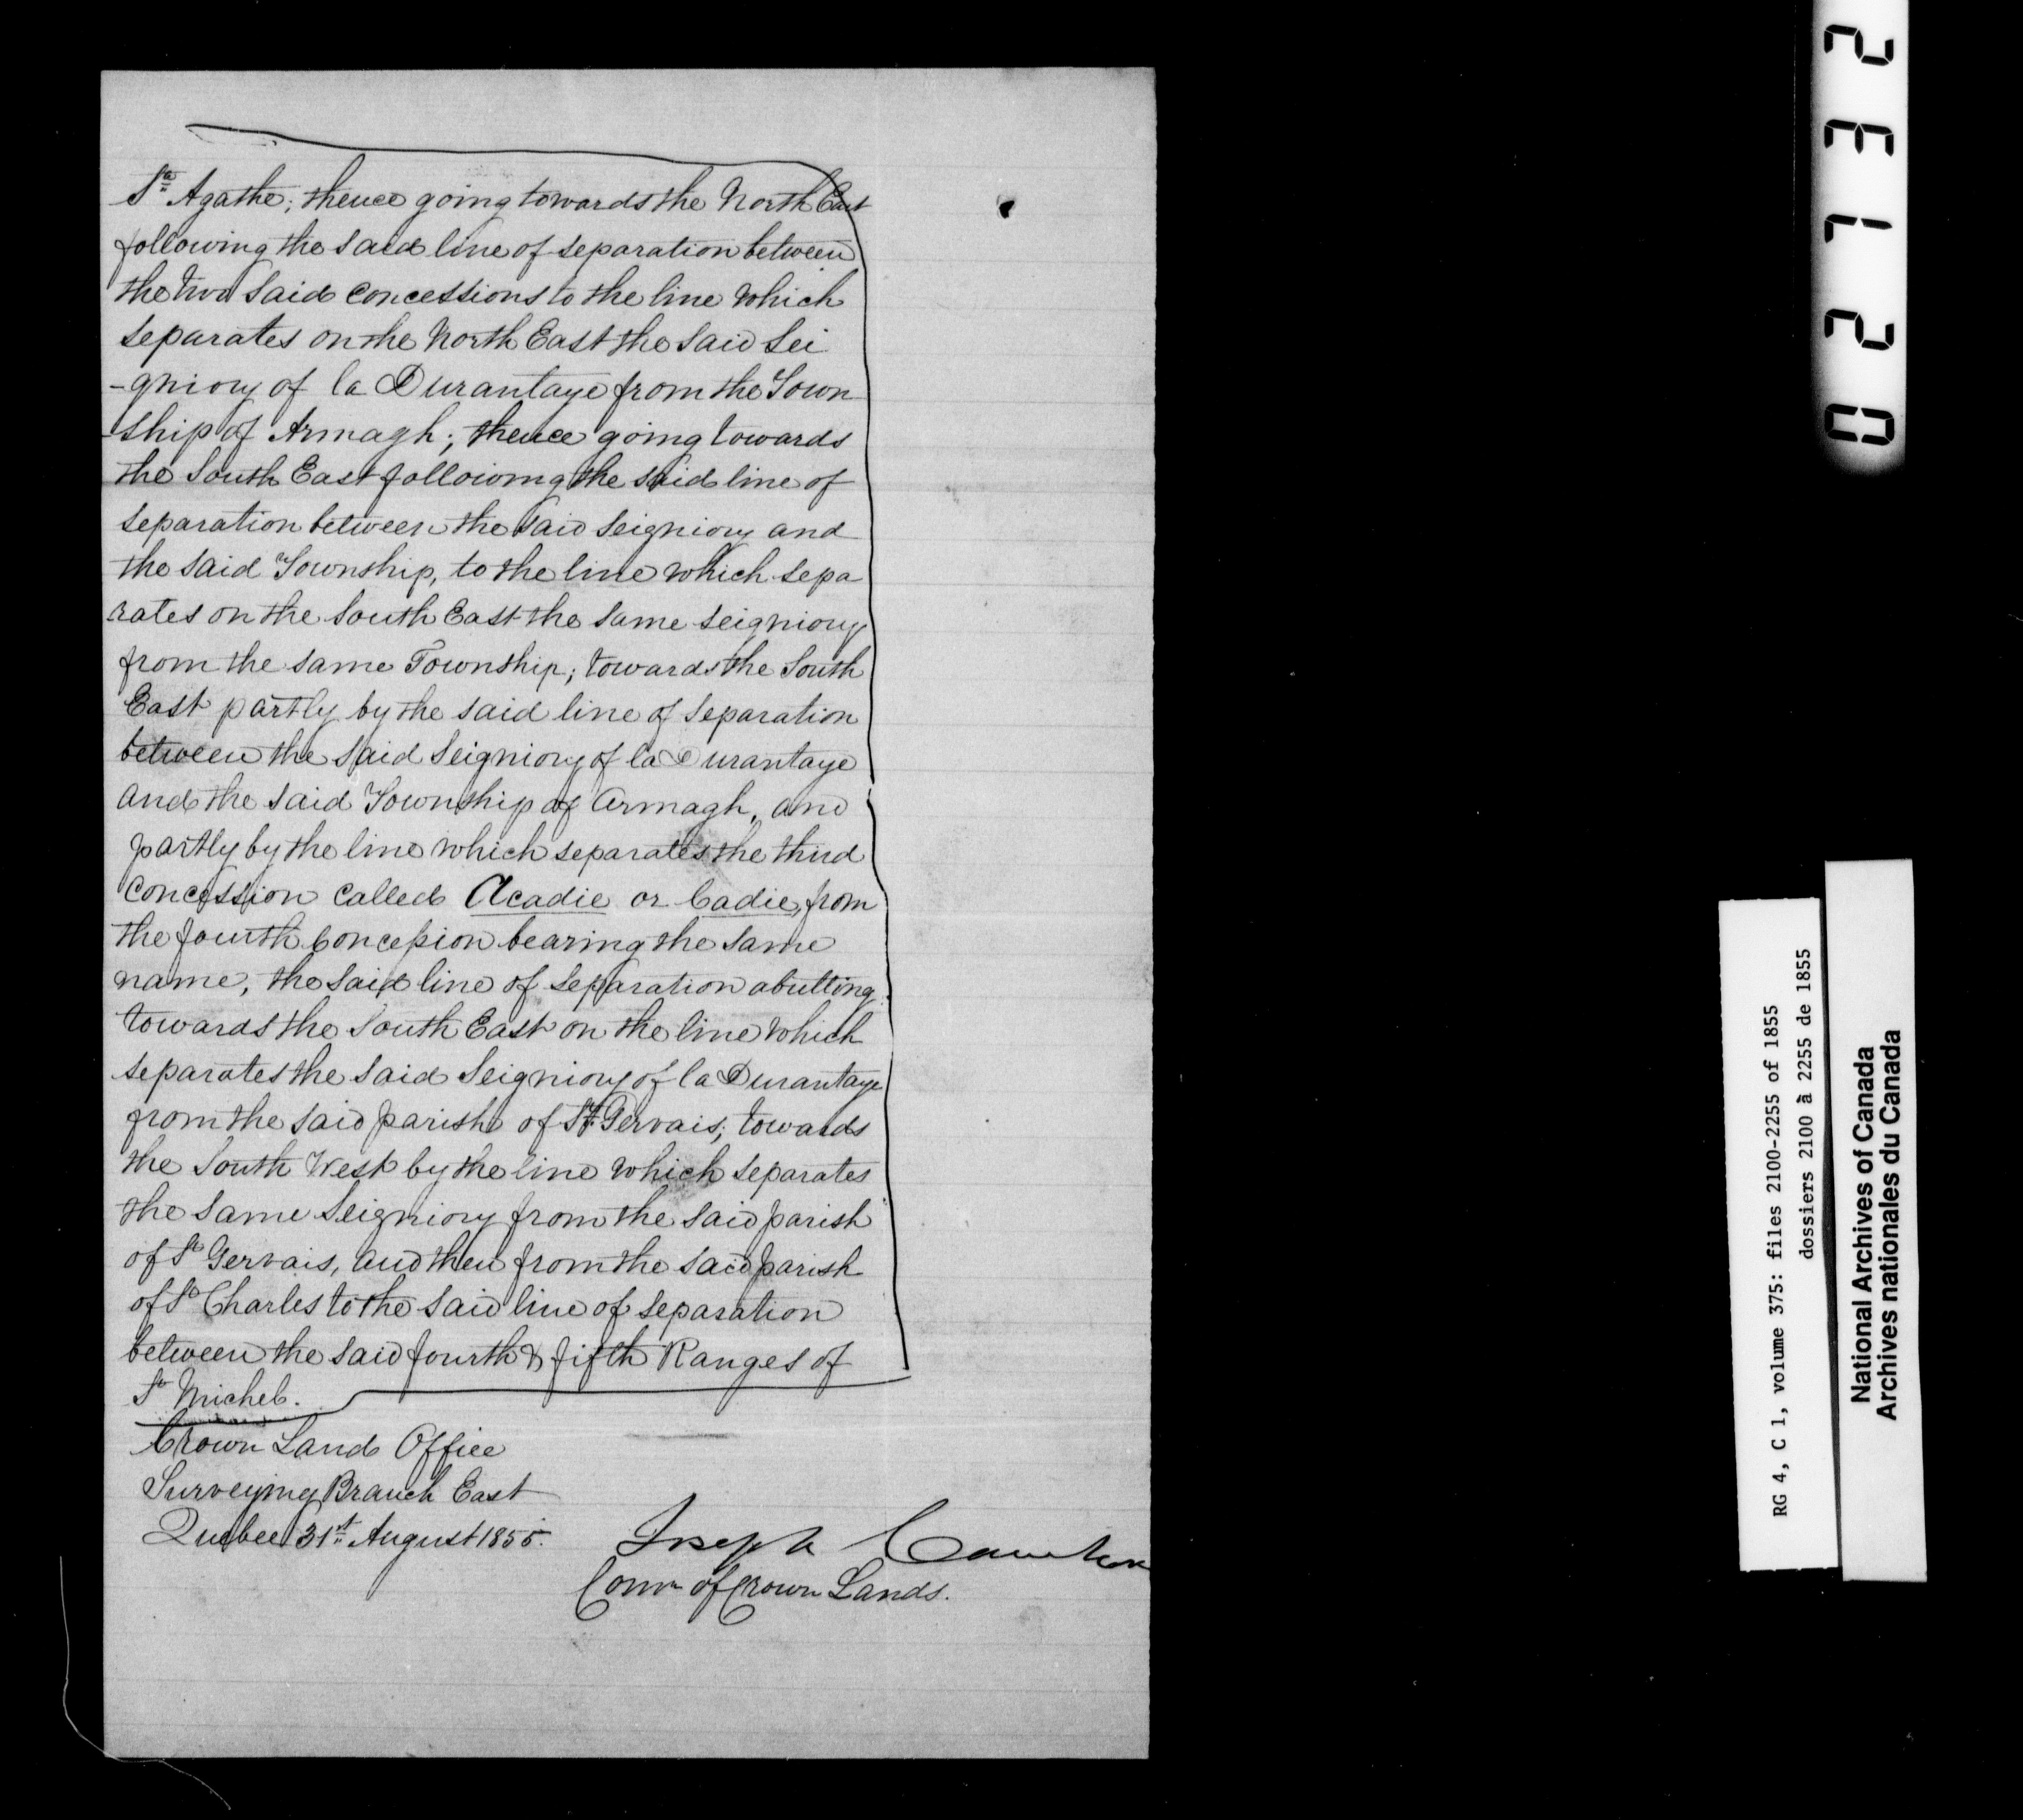 Ste Agathe; thence going towards the North East
following the said line of separation between
the two said concessions to the line which
separates on the North East the said Sei
-gniory of la Durantaye from the Town
-ship of Armagh; thence going towards
the South East following the said line of
separation between the said Seigniory and
the said Township, to the line which sepa
rates on the South East the same seigniory
from the same Township; towards the South
East partly by the said line of separation
between the said Seigniory of la Durantaye
and the said Township of Armagh, and
partly by the line which separates the third
concession called Acadie or Cadie, from
the fourth Concession bearing the same
name, the said line of separation abutting
towards the South East on the line which
separates the said Seigniory of la Durantaye
from the said parish of St Gervais; towards
the South West by the line which separates
the same Seigniory from the said parish
of St Gervais, and then from the said parish
of St Charles to the said line of separation
between the said fourth & fifth Ranges of
St Michel.
Crown Land Office
Surveying Branch East
Quebec 31st August 1855.
Joseph Cauchon
Comr of Crown Lands.
02132
RG 4, C 1, volume 375: files 2100-2255 of 1855
dossiers 2100 à 2255 de 1855
National Archives of Canada
Archives nationales du Canada